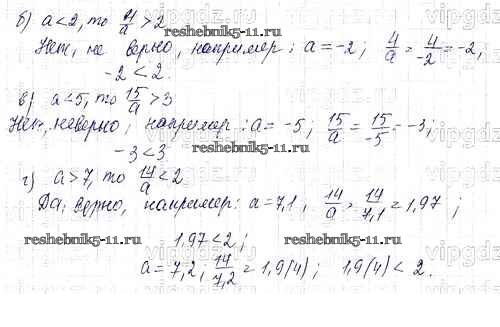 б) a<2, то 4/a > 2
Нет, не верно, например: a = -2; 4/a = 4/-2 = -2,
-2 < 2.
в) a<5, то 15/a > 3
Нет, неверно, например: a = -5; 15/a = 15/-5 = -3;
-3 < 3
г) a > 7, то 14/a < 2
Да, верно, например: a = 7,1, 14/a = 14/7,1 = 1,97;
1,97 < 2;
a = 7,2, 14/7,2 = 1,9(4); 1,9(4) < 2.
reshebnik5-11.ru
reshebnik5-11.ru
reshebnik5-11.ru
reshebnik5-11.ru
vipgdz
vipgdz
vipgdz
vipgdz